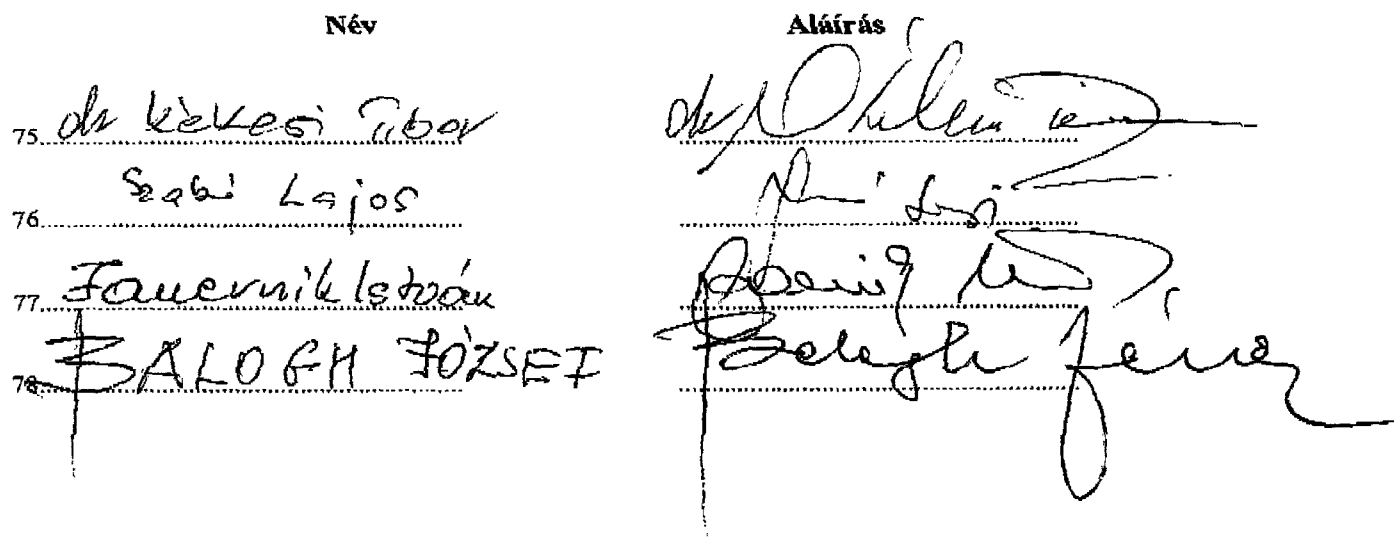 Név Aláírás
75 dr Kékesi Tibor dr
76 Szabó Lajos
77 Jauernik István
78 BALOGH JÓZSEF Balogh József